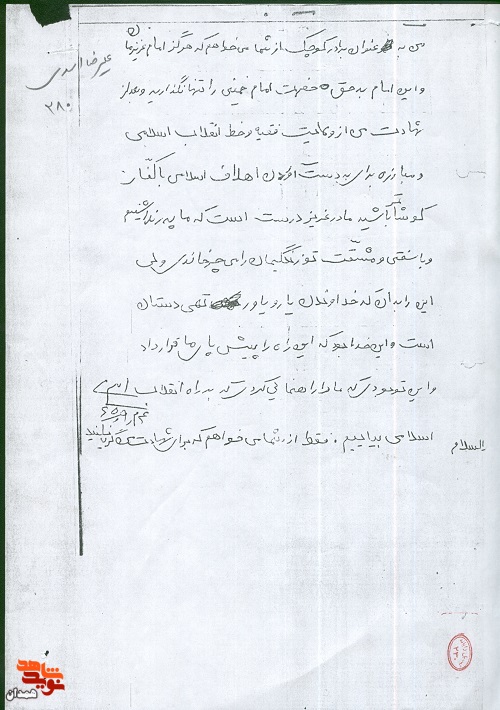 علیرضا اسدی
۳۸۰
من به عنوان برادر کوچک از شما می‌خواهم که هرگز امام عزیزمان
و این امام بر حق حضرت امام خمینی را تنها نگذارید و بعد از
شهادت من از ولایت فقیه و خط انقلاب اسلامی
و مبارزه برای به دست آوردن اهداف اسلامی با کفّار
کوشا باشید مادر عزیز درست است که ما پدر نداشتیم
و با سختی و مشقّت تو زندگیمان را می‌چرخاندی ولی
این را بدان که خداوندمان یار و یاور تهی دستان
است و این خدا بود که این راه را پیش پای ما قرار داد
و این تو بودی که ما را راهنمایی کردی که به راه انقلاب
اسلامی بیاییم. فقط از شما می‌خواهم که برای شهادت گریه نکنید
والسلام
شاهد
نوید
همدان